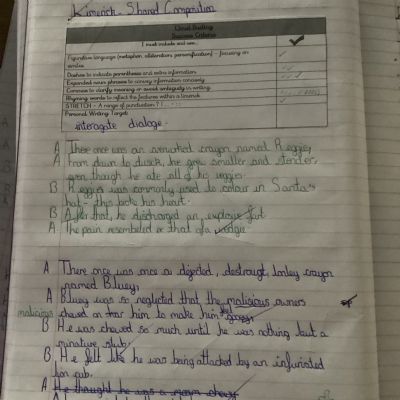 Limerick - Shared Composition
Ghost Busting
Success Criteria
I must include and use...
Figurative language (metaphor, alliteration, personification) - focusing on similes
Dashes to indicate parenthesis and extra information.
Expanded noun phrases to convey information concisely
Commas to clarify meaning or avoid ambiguity in writing
Rhyming words to reflect the features within a limerick
STRETCH - A range of punctuation ? ! ...
Personal Writing Target:
interogate dialoge.
A There once was an overworked crayon named Reggie,
A From dawn to dusk, he grew smaller and slender,
even though he ate all of his veggies.
B Reggies was commonly used to colour in Santa's
hat - this broke his heart.
B After that, he discharged an explosive fart
A The pain resembled that of a wedgie
A There once was once a dejected, destraugt, lonley crayon
named Bluey,
A Bluey was so neglected that the malicious owners
malicious chewed on him to make him feel gooey,
B He was chewed so much until he was nothing but a
minature stub.
B He felt like he was being attacked by an infuriated
lion cub.
A He thought he was a